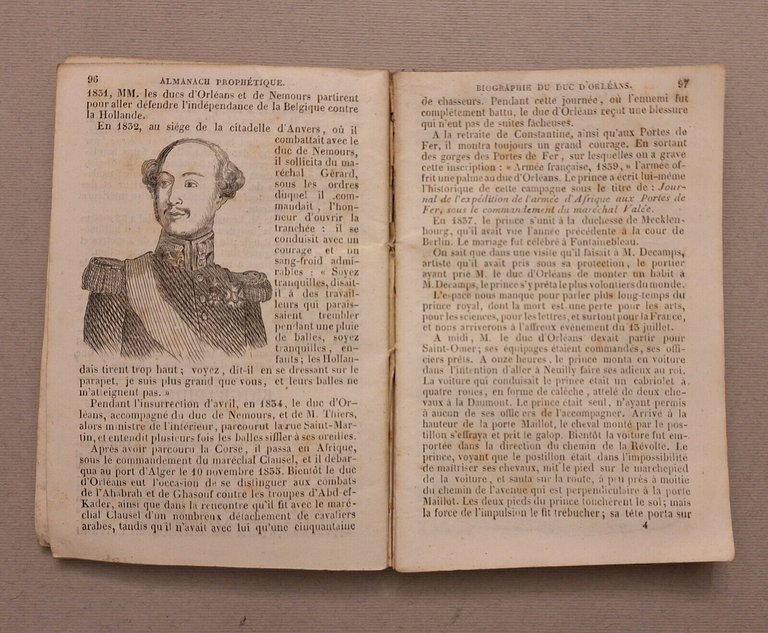 96 ALMANACH PROPHÉTIQUE.
1831, MM. les ducs d'Orléans et de Nemours partirent
pour aller défendre l'indépendance de la Belgique contre
la Hollande.
En 1832, au siége de la citadelle d'Anvers, où il
combattait avec le
duc de Nemours,
il sollicita du ma-
réchal Gérard,
sous les ordres
duquel il com-
mandait, l'hon-
neur d'ouvrir la
tranchée : il se
conduisit avec un
courage et un
sang-froid admi-
rables : « Soyez
tranquilles, disait-
il à des travail-
leurs qui parais-
saient trembler
pendant une pluie
de balles, soyez
tranquilles, en-
fants; les Hollan-
dais tirent trop haut; voyez, dit-il en se dressant sur le
parapet, je suis plus grand que vous, et leurs balles ne
m'atteignent pas. »
Pendant l'insurrection d'avril, en 1834, le duc d'Or-
léans, accompagné du duc de Nemours, et de M. Thiers,
alors ministre de l'intérieur, parcourut la rue Saint-Mar-
tin, et entendit plusieurs fois les balles siffler à ses oreilles.
Après avoir parcouru la Corse, il passa en Afrique,
sous le commandement du maréchal Clausel, et il débar-
qua au port d'Alger le 10 novembre 1835. Bientôt le duc
d'Orléans eut l'occasion de se distinguer aux combats
de l'Ahabrah et de Ghasouf contre les troupes d'Abd-el-
Kader, ainsi que dans la rencontre qu'il fit avec le maré-
chal Clausel d'un nombreux détachement de cavaliers
arabes, tandis qu'il n'avait avec lui qu'une cinquantaine
BIOGRAPHIE DU DUC D'ORLÉANS. 97
de chasseurs. Pendant cette journée, où l'ennemi fut
complètement battu, le duc d'Orléans reçut une blessure
qui n'eut pas de suites facheuses.
A la retraite de Constantine, ainsi qu'aux Portes de
Fer, il montra toujours un grand courage. En sortant
des gorges des Portes de Fer, sur lesquelles on a gravé
cette inscription : « Armée française, 1839, » l'armée of-
frit une palme au duc d'Orléans. Le prince a écrit lui-même
l'historique de cette campagne sous le titre de : Jour-
nal de l'expédition de l'armée d'Afrique aux Portes de
Fer, sous le commandement du maréchal Valée.
En 1837, le prince s'unit à la duchesse de Mecklen-
bourg, qu'il avait vue l'année précédente à la cour de
Berlin. Le mariage fut célébré à Fontainebleau.
On sait que dans une visite qu'il faisait à M. Decamps,
artiste qu'il avait pris sous sa protection, le portier
ayant prié M. le duc d'Orléans de monter un habit à
M. Decamps, le prince s'y prêta le plus volontiers du monde.
L'espace nous manque pour parler plus long-temps du
prince royal, dont la mort est une perte pour les arts,
pour les sciences, pour les lettres, et surtout pour la France,
et nous arriverons à l'affreux événement du 13 juillet.
A midi, M. le duc d'Orléans devait partir pour
Saint-Omer; ses équipages étaient commandés, ses offi-
ciers prêts. A onze heures, le prince monta en voiture
dans l'intention d'aller à Neuilly faire ses adieux au roi.
La voiture qui conduisait le prince était un cabriolet à
quatre roues, en forme de calèche, attelé de deux che-
vaux à la Daumont. Le prince était seul, n'ayant permis
à aucun de ses officiers de l'accompagner. Arrivé à la
hauteur de la porte Maillot, le cheval monté par le pos-
tillon s'effraya et prit le galop. Bientôt la voiture fut em-
portée dans la direction du chemin de la Révolte. Le
prince, voyant que le postillon était dans l'impossibilité
de maîtriser ses chevaux, mit le pied sur le marchepied
de la voiture, et sauta sur la route, à peu près à moitié
du chemin de l'avenue qui est perpendiculaire à la porte
Maillot. Les deux pieds du prince touchèrent le sol; mais
la force de l'impulsion le fit trébucher; sa tête porta sur
4